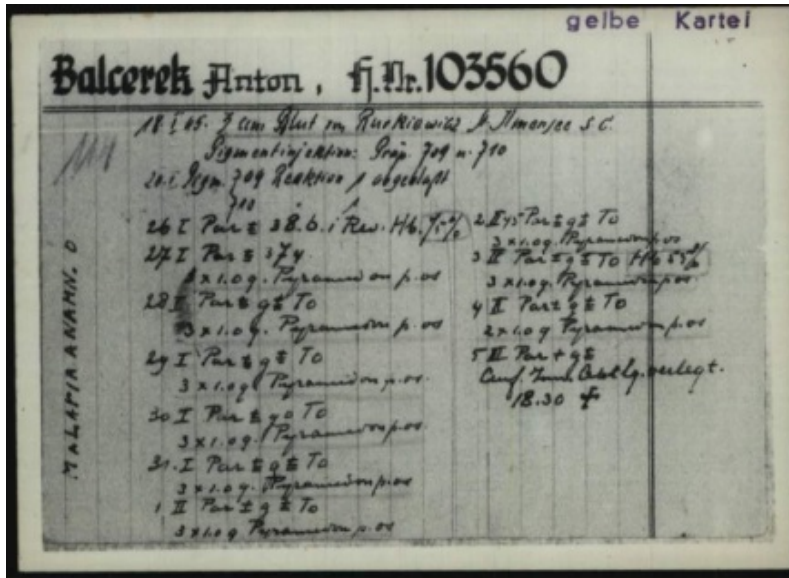 gelbe Kartei
Balcerek Anton, H.Nr. 103560
114
18.I.45. 3 ccm Blut von Rutkiewicz
Pigmentinjektion: Präp. 709 u. 710
20.I. Pigm. 709 Reaktion
710
MALARIA ANAMN. O
26 I Par ± 38.6. i Rev. Hb. 75%
27 I Par ± 37.4.
3 x 1.0 g. Pyramidon p. os
28 I Par ± g ± To
3 x 1.0 g. Pyramidon p. os
29 I Par ± g ± To
3 x 1.0 g Pyramidon p. os.
30 I Par ± g o To
3 x 1.0 g. Pyramidon p. os
31. I Par ± g ± To
3 x 1.0 g. Pyramidon p. os
1 II Par ± g ± To
3 x 1.0 g Pyramidon p. os
2. II 45 Par ± g ± To
3 x 1.0 g. Pyramidon p. os
3 II Par ± g ± To Hb 55%
3 x 1.0 g. Pyramidon p. os
4 II Par ± g ± To
2 x 1.0 g Pyramidon p. os
5 II Par + g ±
Auf. Inn. Abtlg. verlegt.
18.30 †